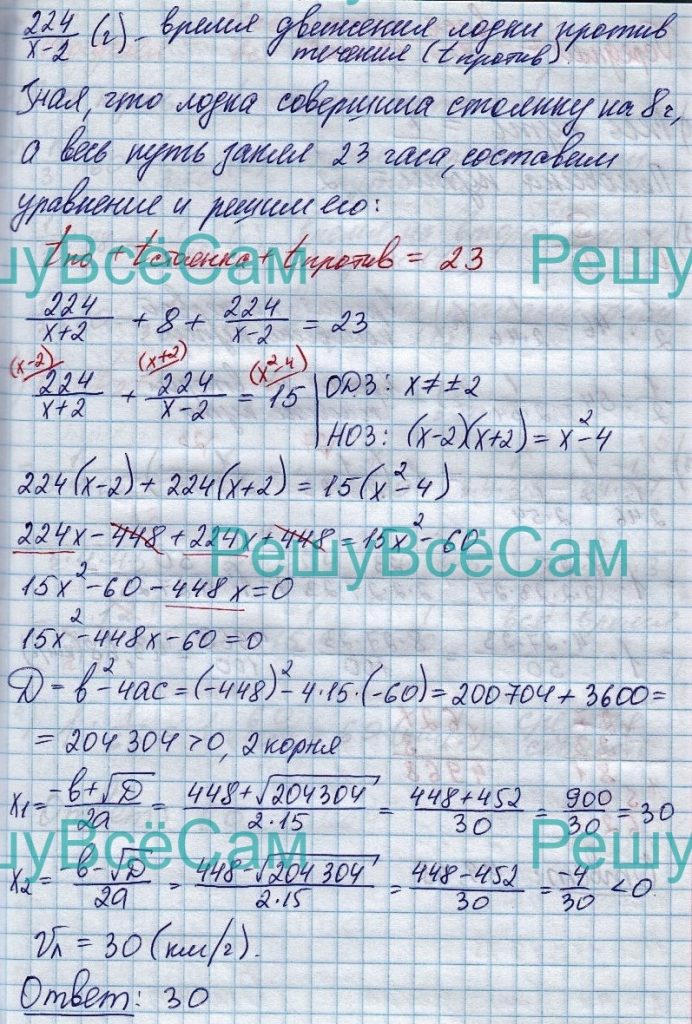 224/(x-2) (ч) - время движения лодки против
течения (t против).
Зная, что лодка совершила стоянку на 8 ч,
а весь путь занял 23 часа, составим
уравнение и решим его:
t по + t стоянка + t против = 23
РешуВсёСам РешуВсёСам
224/(x+2) + 8 + 224/(x-2) = 23
(x-2) (x+2) (x²-4)
224/(x+2) + 224/(x-2) = 15 | ОДЗ: x ≠ ±2
НОЗ: (x-2)(x+2) = x²-4
224(x-2) + 224(x+2) = 15(x²-4)
224x - 448 + 224x + 448 = 15x² - 60
РешуВсёСам
15x² - 60 - 448x = 0
15x² - 448x - 60 = 0
D = b² - 4ac = (-448)² - 4·15·(-60) = 200704 + 3600 =
= 204 304 > 0, 2 корня
x₁ = (-b+√D)/2a = (448+√204304)/(2·15) = (448+452)/30 = 900/30 = 30
РешуВсёСам РешуВсёСам
x₂ = (-b-√D)/2a = (448-√204304)/(2·15) = (448-452)/30 = -4/30 < 0.
Vл = 30 (км/ч).
Ответ: 30